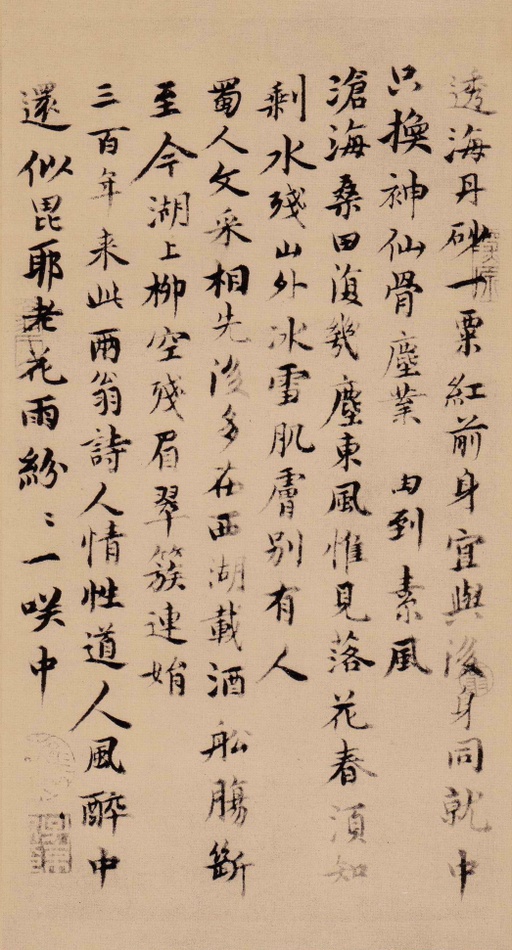 透海丹砂一粟紅前身宜與後身同就中
只換神仙骨塵業 由到素風
滄海桑田復幾塵東風惟見落花春須知
剩水殘山外冰雪肌膚別有人
蜀人文采相先後多在西湖載酒船腸斷
至今湖上柳空殘眉翠簇連娟
三百年來此兩翁詩人情性道人風醉中
還似毘耶老花雨紛〻一笑中